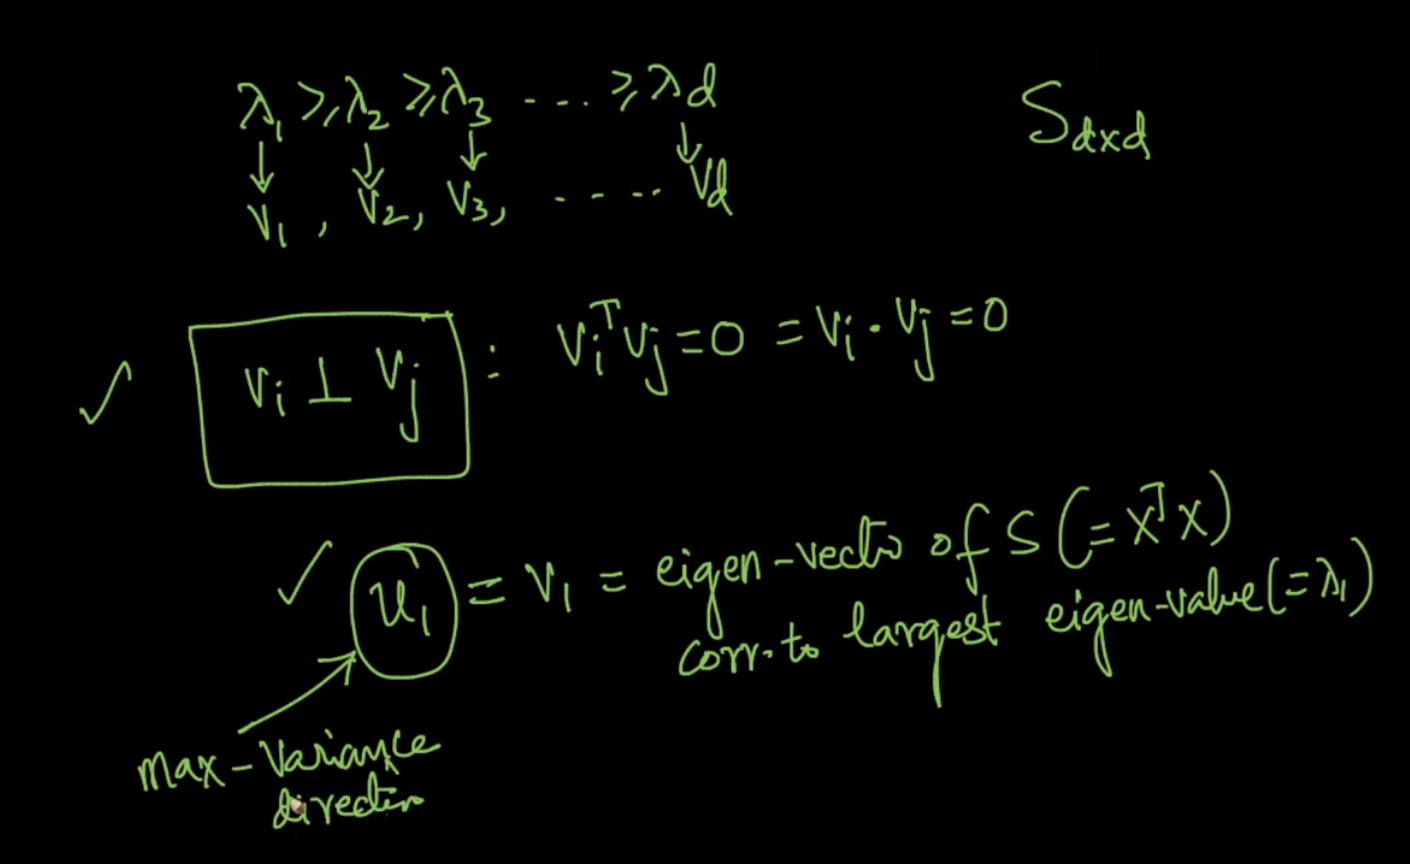 λ₁ ≥ λ₂ ≥ λ₃ ---- ≥ λd
S dxd
↓ ↓ ↓ ↓
V₁, V₂, V₃, ----- Vd
✓ Vᵢ ⊥ Vⱼ : Vᵢᵀ Vⱼ = 0 = Vᵢ · Vⱼ = 0
✓ u₁ = V₁ = eigen-vector of S (= XᵀX)
corr. to largest eigen-value (= λ₁)
max-variance
direction